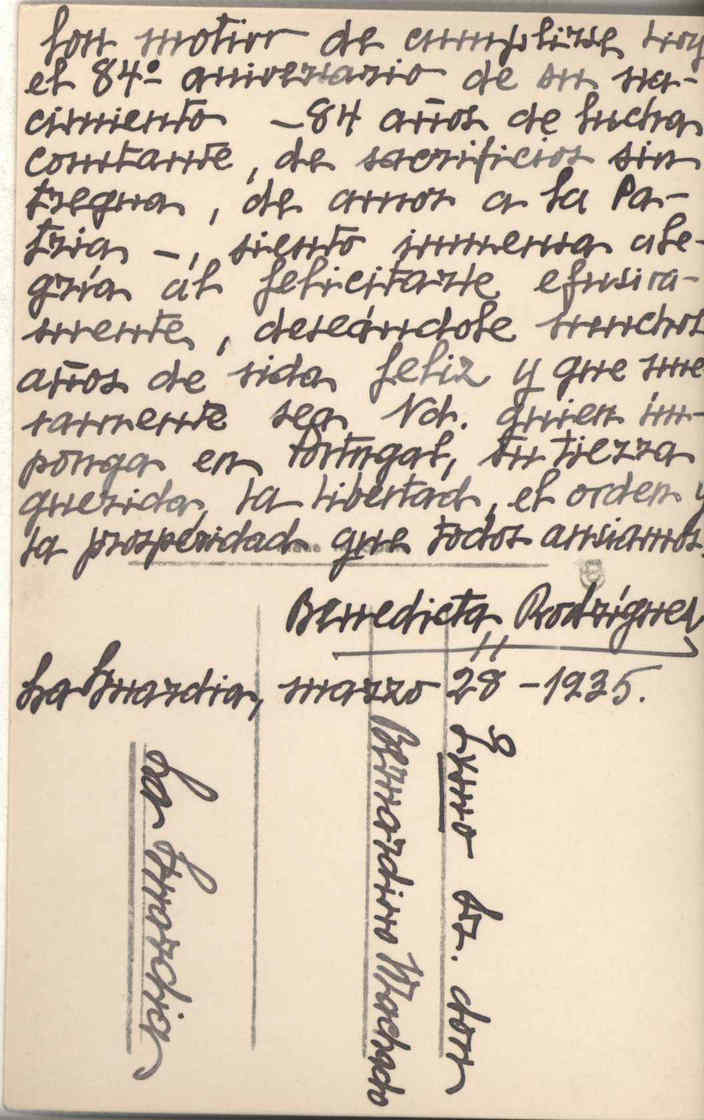 Con motivo de cumplirse hoy
el 84º aniversario de su na-
cimiento -84 años de lucha
constante, de sacrificios sin
tregua, de amor a la Pa-
tria -, siento inmensa ale-
gría al felicitarle efusiva-
mente, deseándole muchos
años de vida feliz y que nue
vamente sea Vd. quien im-
ponga en Portugal, su tierra
querida, la libertad, el orden y
la prosperidad que todos ansiamos.
Benedicta Rodríguez
La Guardia, marzo 28-1935.
Exmo Sr. don
Bernardino Machado
La Guardia